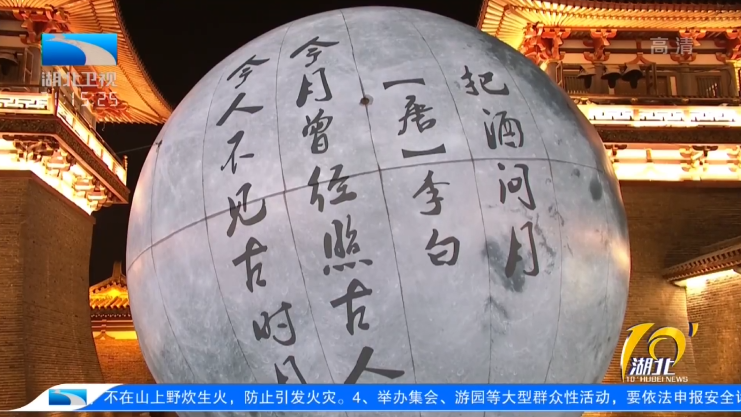 湖北卫视
15:25
高清
把酒问月
【唐】李白
今月曾经照古人
今人不见古时月
10'
湖北
10'HUBEI NEWS
不在山上野炊生火，防止引发火灾。4、举办集会、游园等大型群众性活动，要依法申报安全